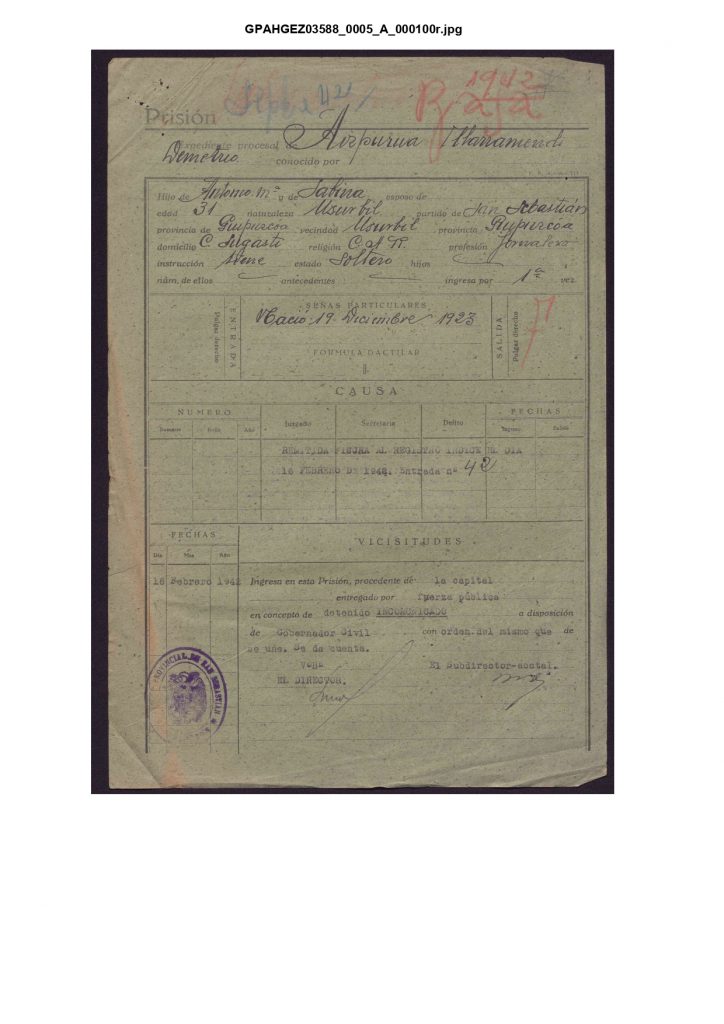 GPAHGEZ03588_0005_A_000100r.jpg
1942
Baja
Prisión
Expediente procesal de Aizpurua Ybarramendi
Demetrio conocido por
Hijo de Antonio Mª y de Sabina esposo de
edad 31 naturaleza Usurbil partido de San Sebastián
provincia de Guipuzcoa vecindad Usurbil provincia Guipuzcoa
domicilio C. religión C.A.R. profesión Jornalero
instrucción tiene estado Soltero hijos
núm. de ellos antecedentes ingresa por 1ª vez.
ENTRADA
Pulgar derecho
SEÑAS PARTICULARES
Nació 19 Diciembre 1923
FORMULA DACTILAR
SALIDA
Pulgar derecho
CAUSA
NUMERO Juzgado Secretaría Delito FECHAS
Sumario Rollo Año Ingreso Salida
REMITIDA FICHA AL REGISTRO INDICE EL DIA
16 FEBRERO DE 1942. Entrada nº 42
FECHAS VICISITUDES
Día Mes Año
16 Febrero 1942 Ingresa en esta Prisión, procedente de la capital
entregado por fuerza pública
en concepto de detenido INCOMUNICADO a disposición
de Gobernador Civil con orden del mismo que de
se une. Se da cuenta.
VºBº El Subdirector-acctal.
EL DIRECTOR.
PROVINCIAL DE SAN SEBASTIAN